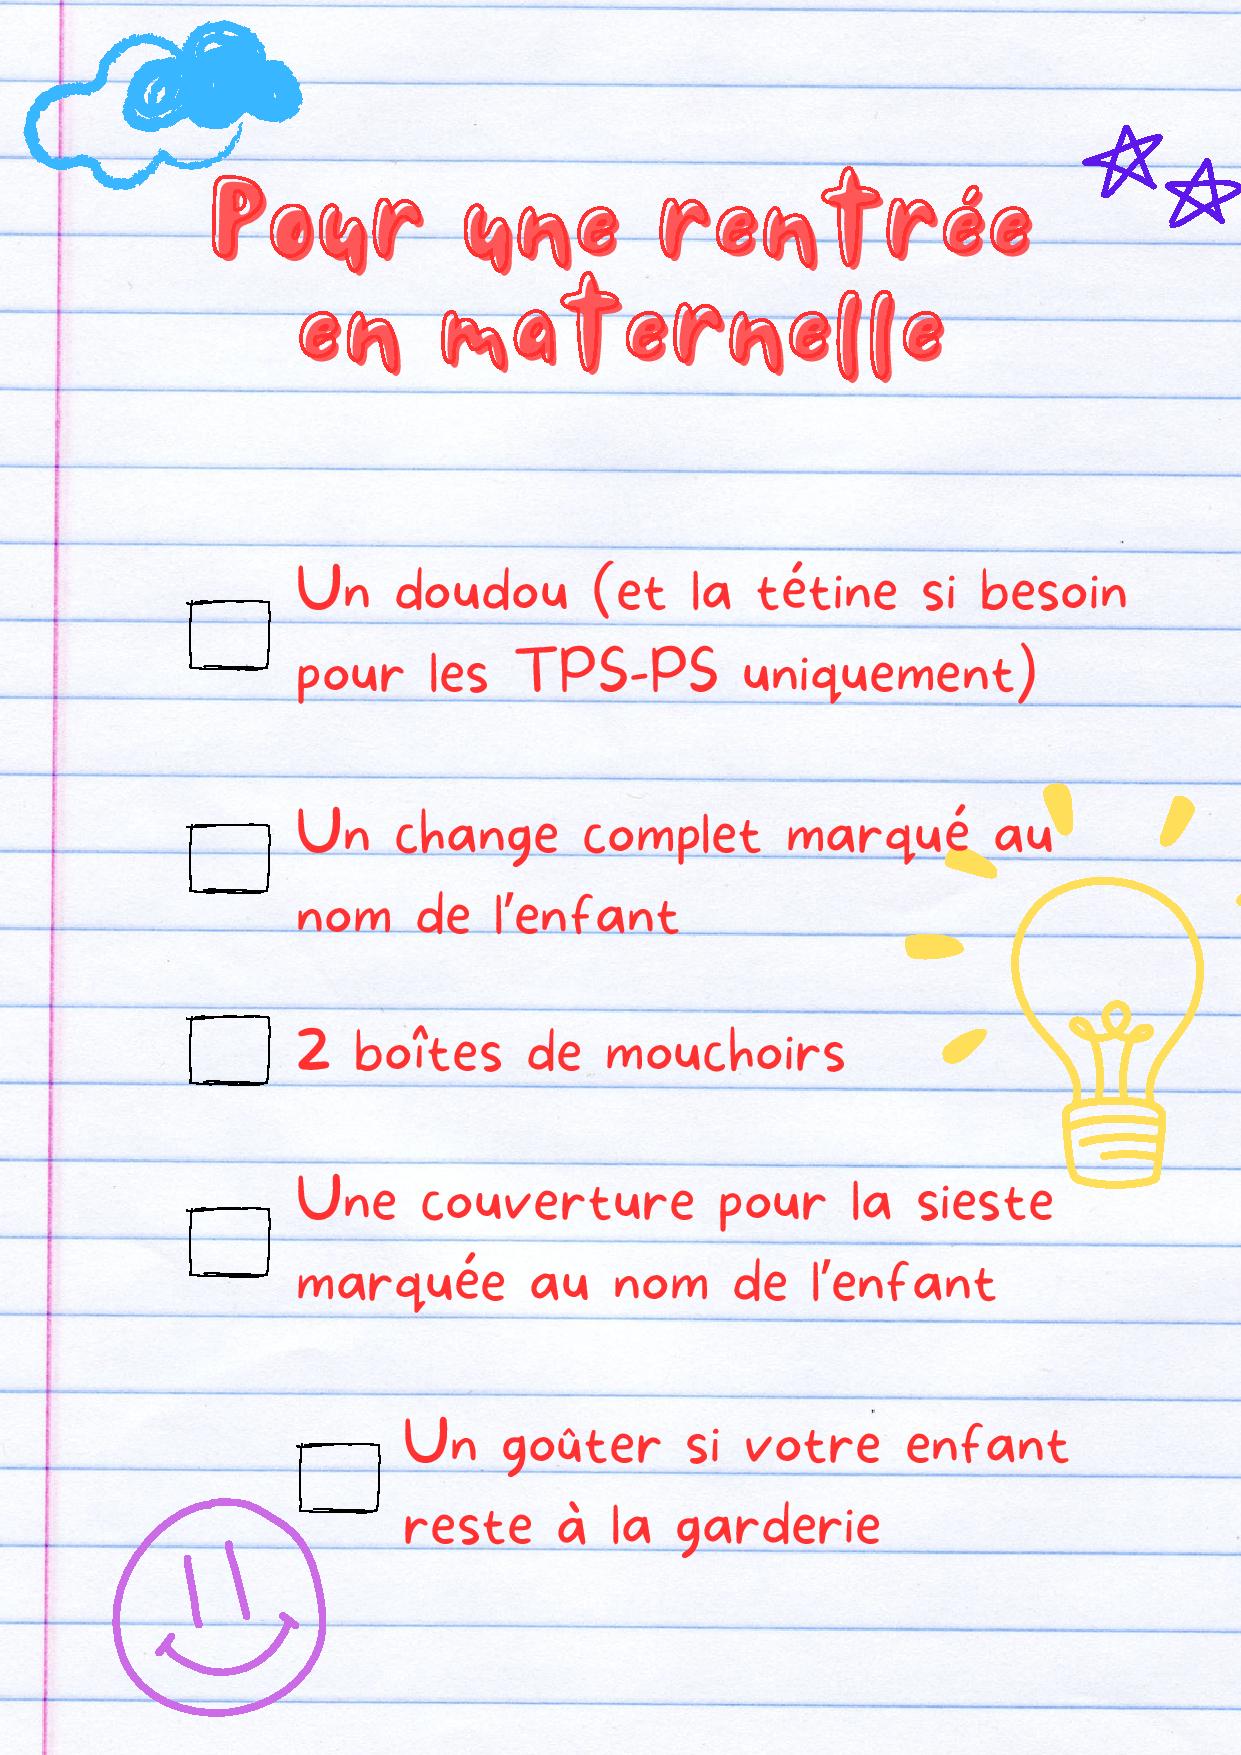 Pour une rentrée
en maternelle
Un doudou (et la tétine si besoin
pour les TPS-PS uniquement)
Un change complet marqué au
nom de l'enfant
2 boîtes de mouchoirs
Une couverture pour la sieste
marquée au nom de l'enfant
Un goûter si votre enfant
reste à la garderie